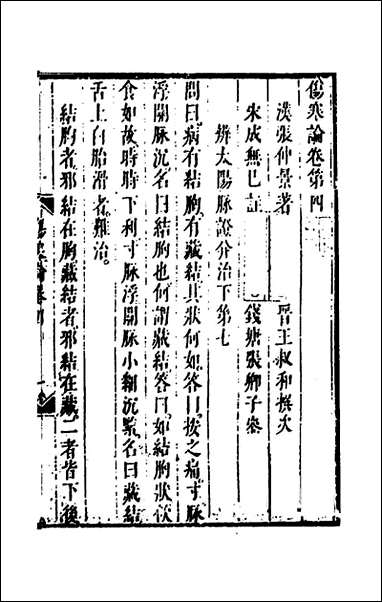 傷寒論卷第四
漢張仲景著　晉王叔和撰次
宋成無已註　錢塘張卿子參
辨太陽脉證并治下第七
問曰病有結胸有藏結其狀何如答曰按之痛寸脉
浮關脉沉名曰結胸也何謂藏結答曰如結胸狀飲
食如故時時下利寸脉浮關脉小細沉緊名曰藏結
舌上白胎滑者難治
結胸者邪結在胸藏結者邪結在藏二者皆下後
傷寒論卷四